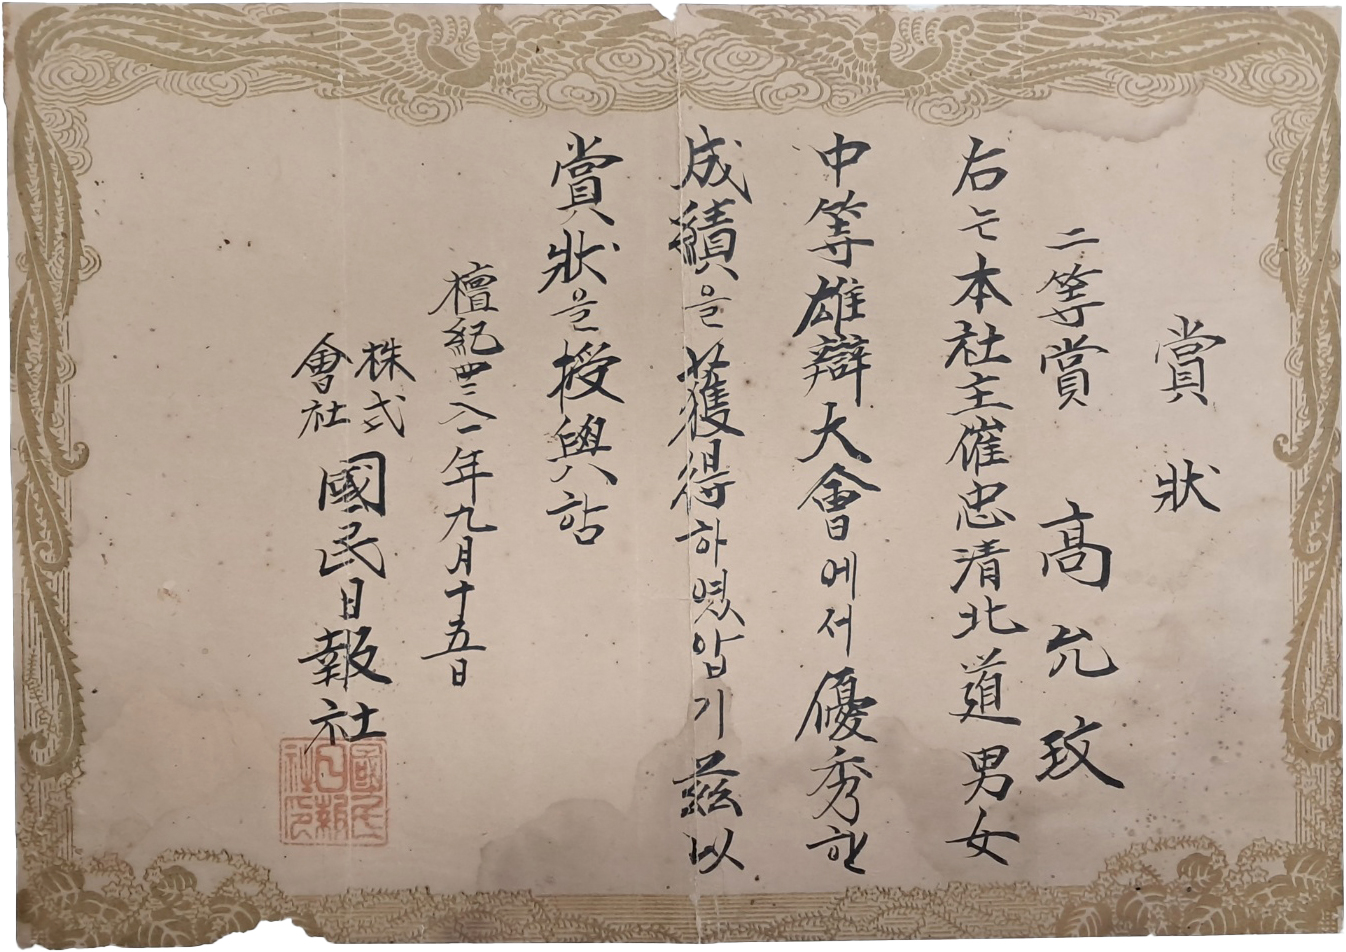 賞狀
二等賞 高允玟
右는本社主催忠清北道男女
中等雄辯大會에서優秀한
成績을獲得하였압기玆以
賞狀을授與함
檀紀四二八一年九月十五日
株式
會社
國民日報社
國民
日報
社印